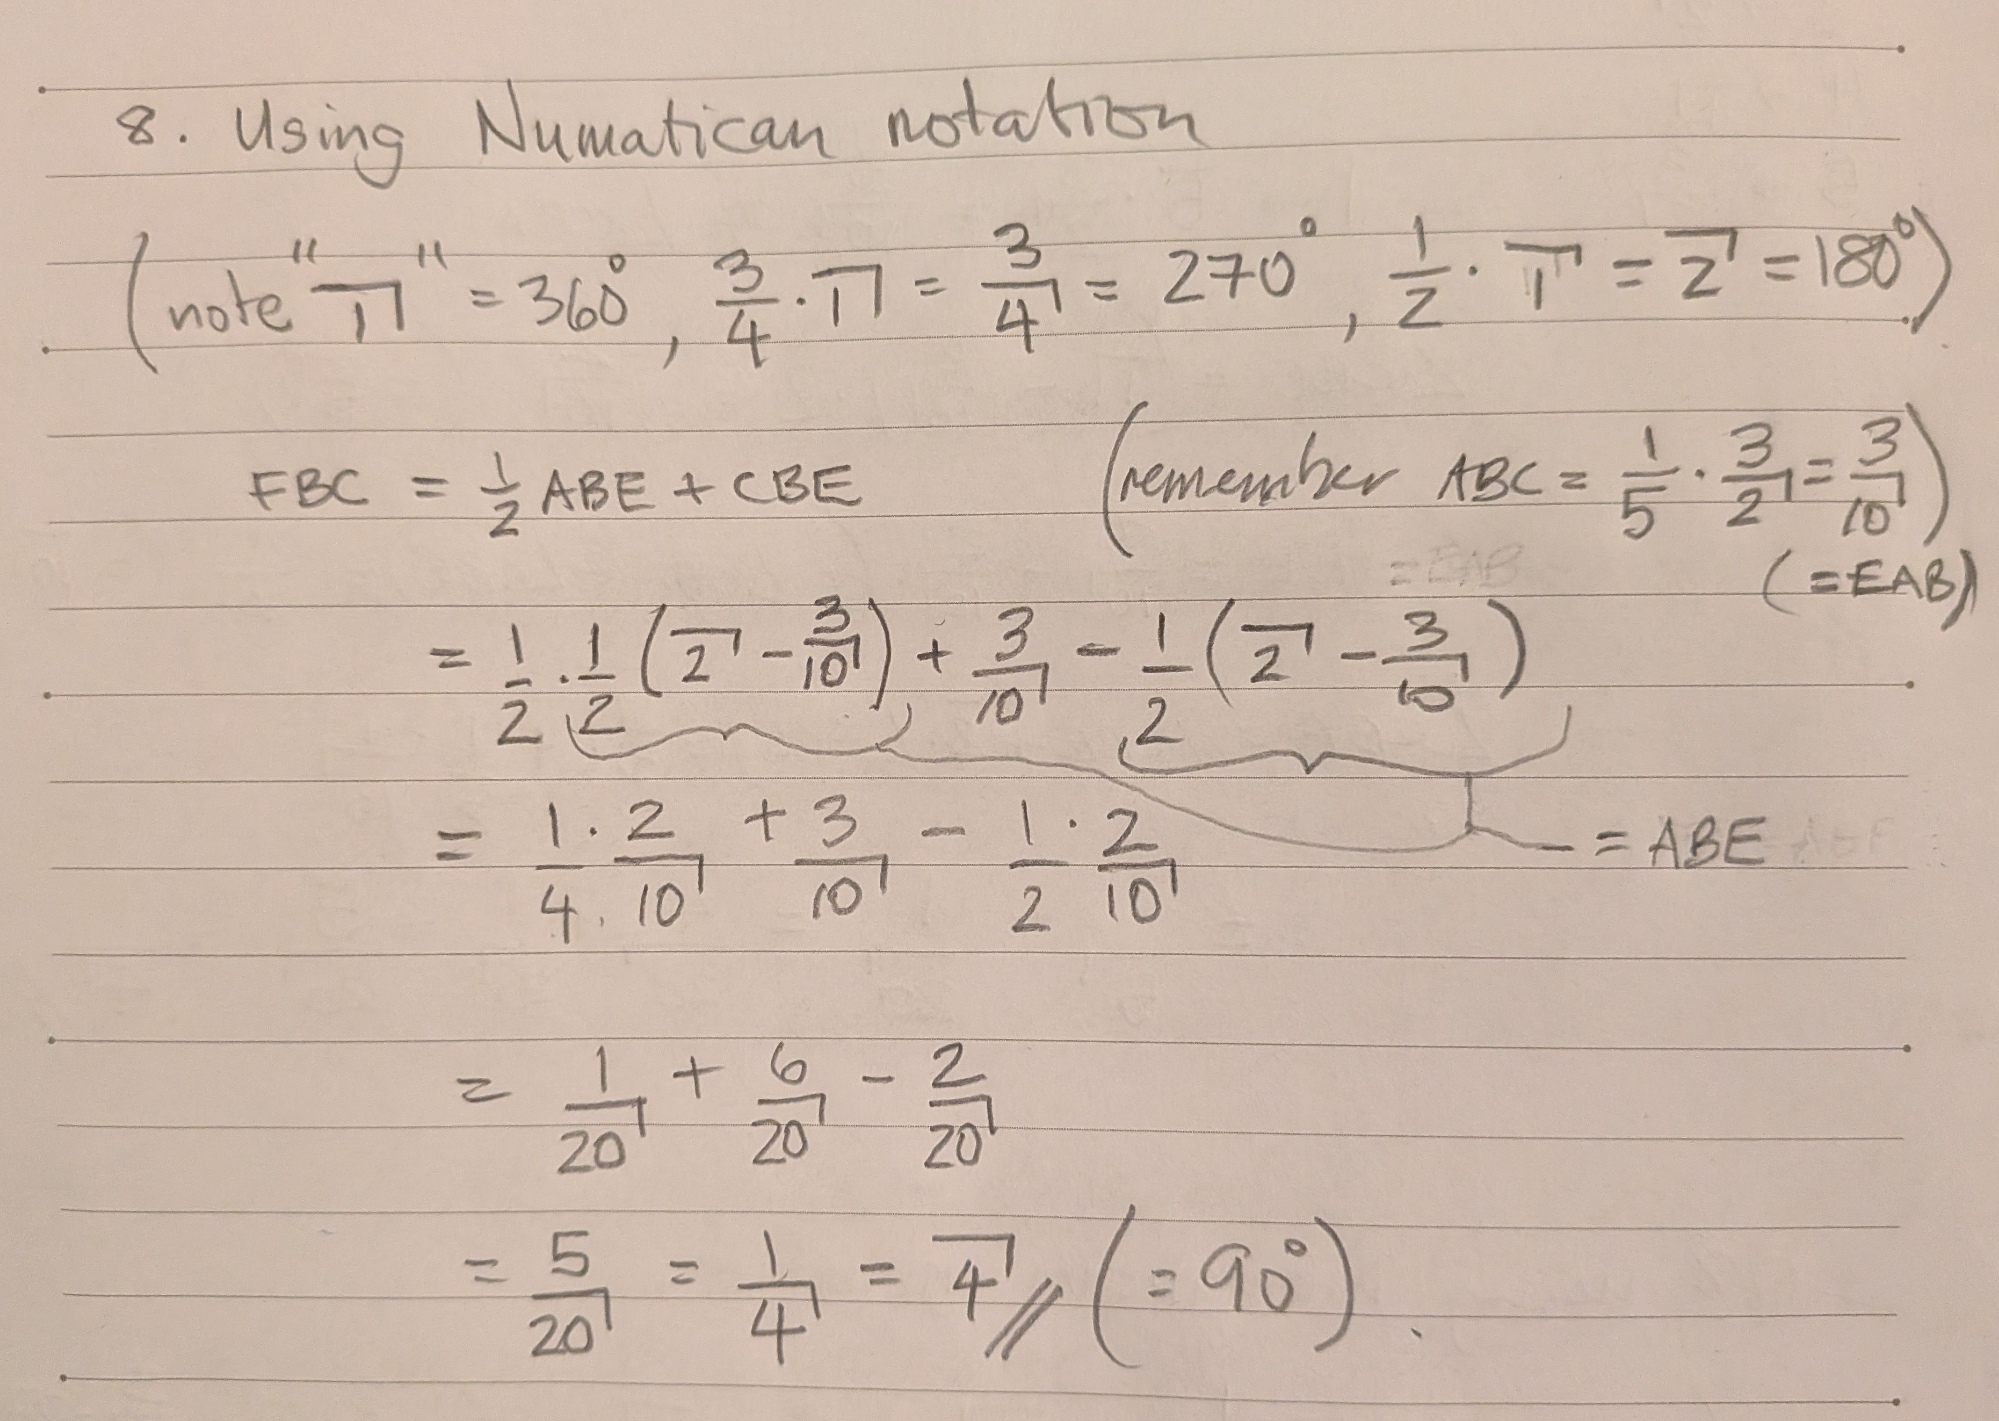 8. Using Numatican notation
(note "1̅˥" = 360°, 3/4 · 1̅˥ = 3/4̅˥ = 270°, 1/2 · 1̅˥ = 2̅˥ = 180°)
FBC = 1/2 ABE + CBE (remember ABC = 1/5 · 3/2̅˥ = 3/10̅˥)
(=EAB)
= 1/2 · 1/2 (2̅˥ - 3/10̅˥) + 3/10̅˥ - 1/2 (2̅˥ - 3/10̅˥)
= 1/4 · 2/10̅˥ + 3/10̅˥ - 1/2 · 2/10̅˥ = ABE
= 1/20̅˥ + 6/20̅˥ - 2/20̅˥
= 5/20̅˥ = 1/4̅˥ = 4̅˥ // (= 90°).